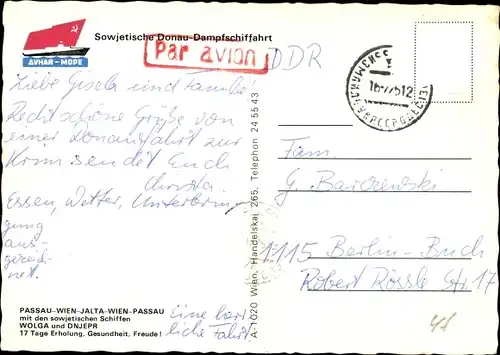 Sowjetische Donau-Dampfschiffahrt
ДУНАЙ - МОРЕ
Par avion
DDR
Liebe Gisela und Familie,
Recht schöne Grüße von
einer Donaufahrt zur
Krim sendet Euch
Christa
Essen, Wetter, Unterbrin
gung
aus-
gezeich
net.
PASSAU–WIEN–JALTA–WIEN–PASSAU
mit den sowjetischen Schiffen
WOLGA und DNJEPR
17 Tage Erholung, Gesundheit, Freude!
Eine herr
liche Fahrt
A-1020 Wien, Handelskai 265, Telephon 24 55 43
Fam.
G. Barczewski
1115 Berlin-Buch
Robert Rössle Str. 17